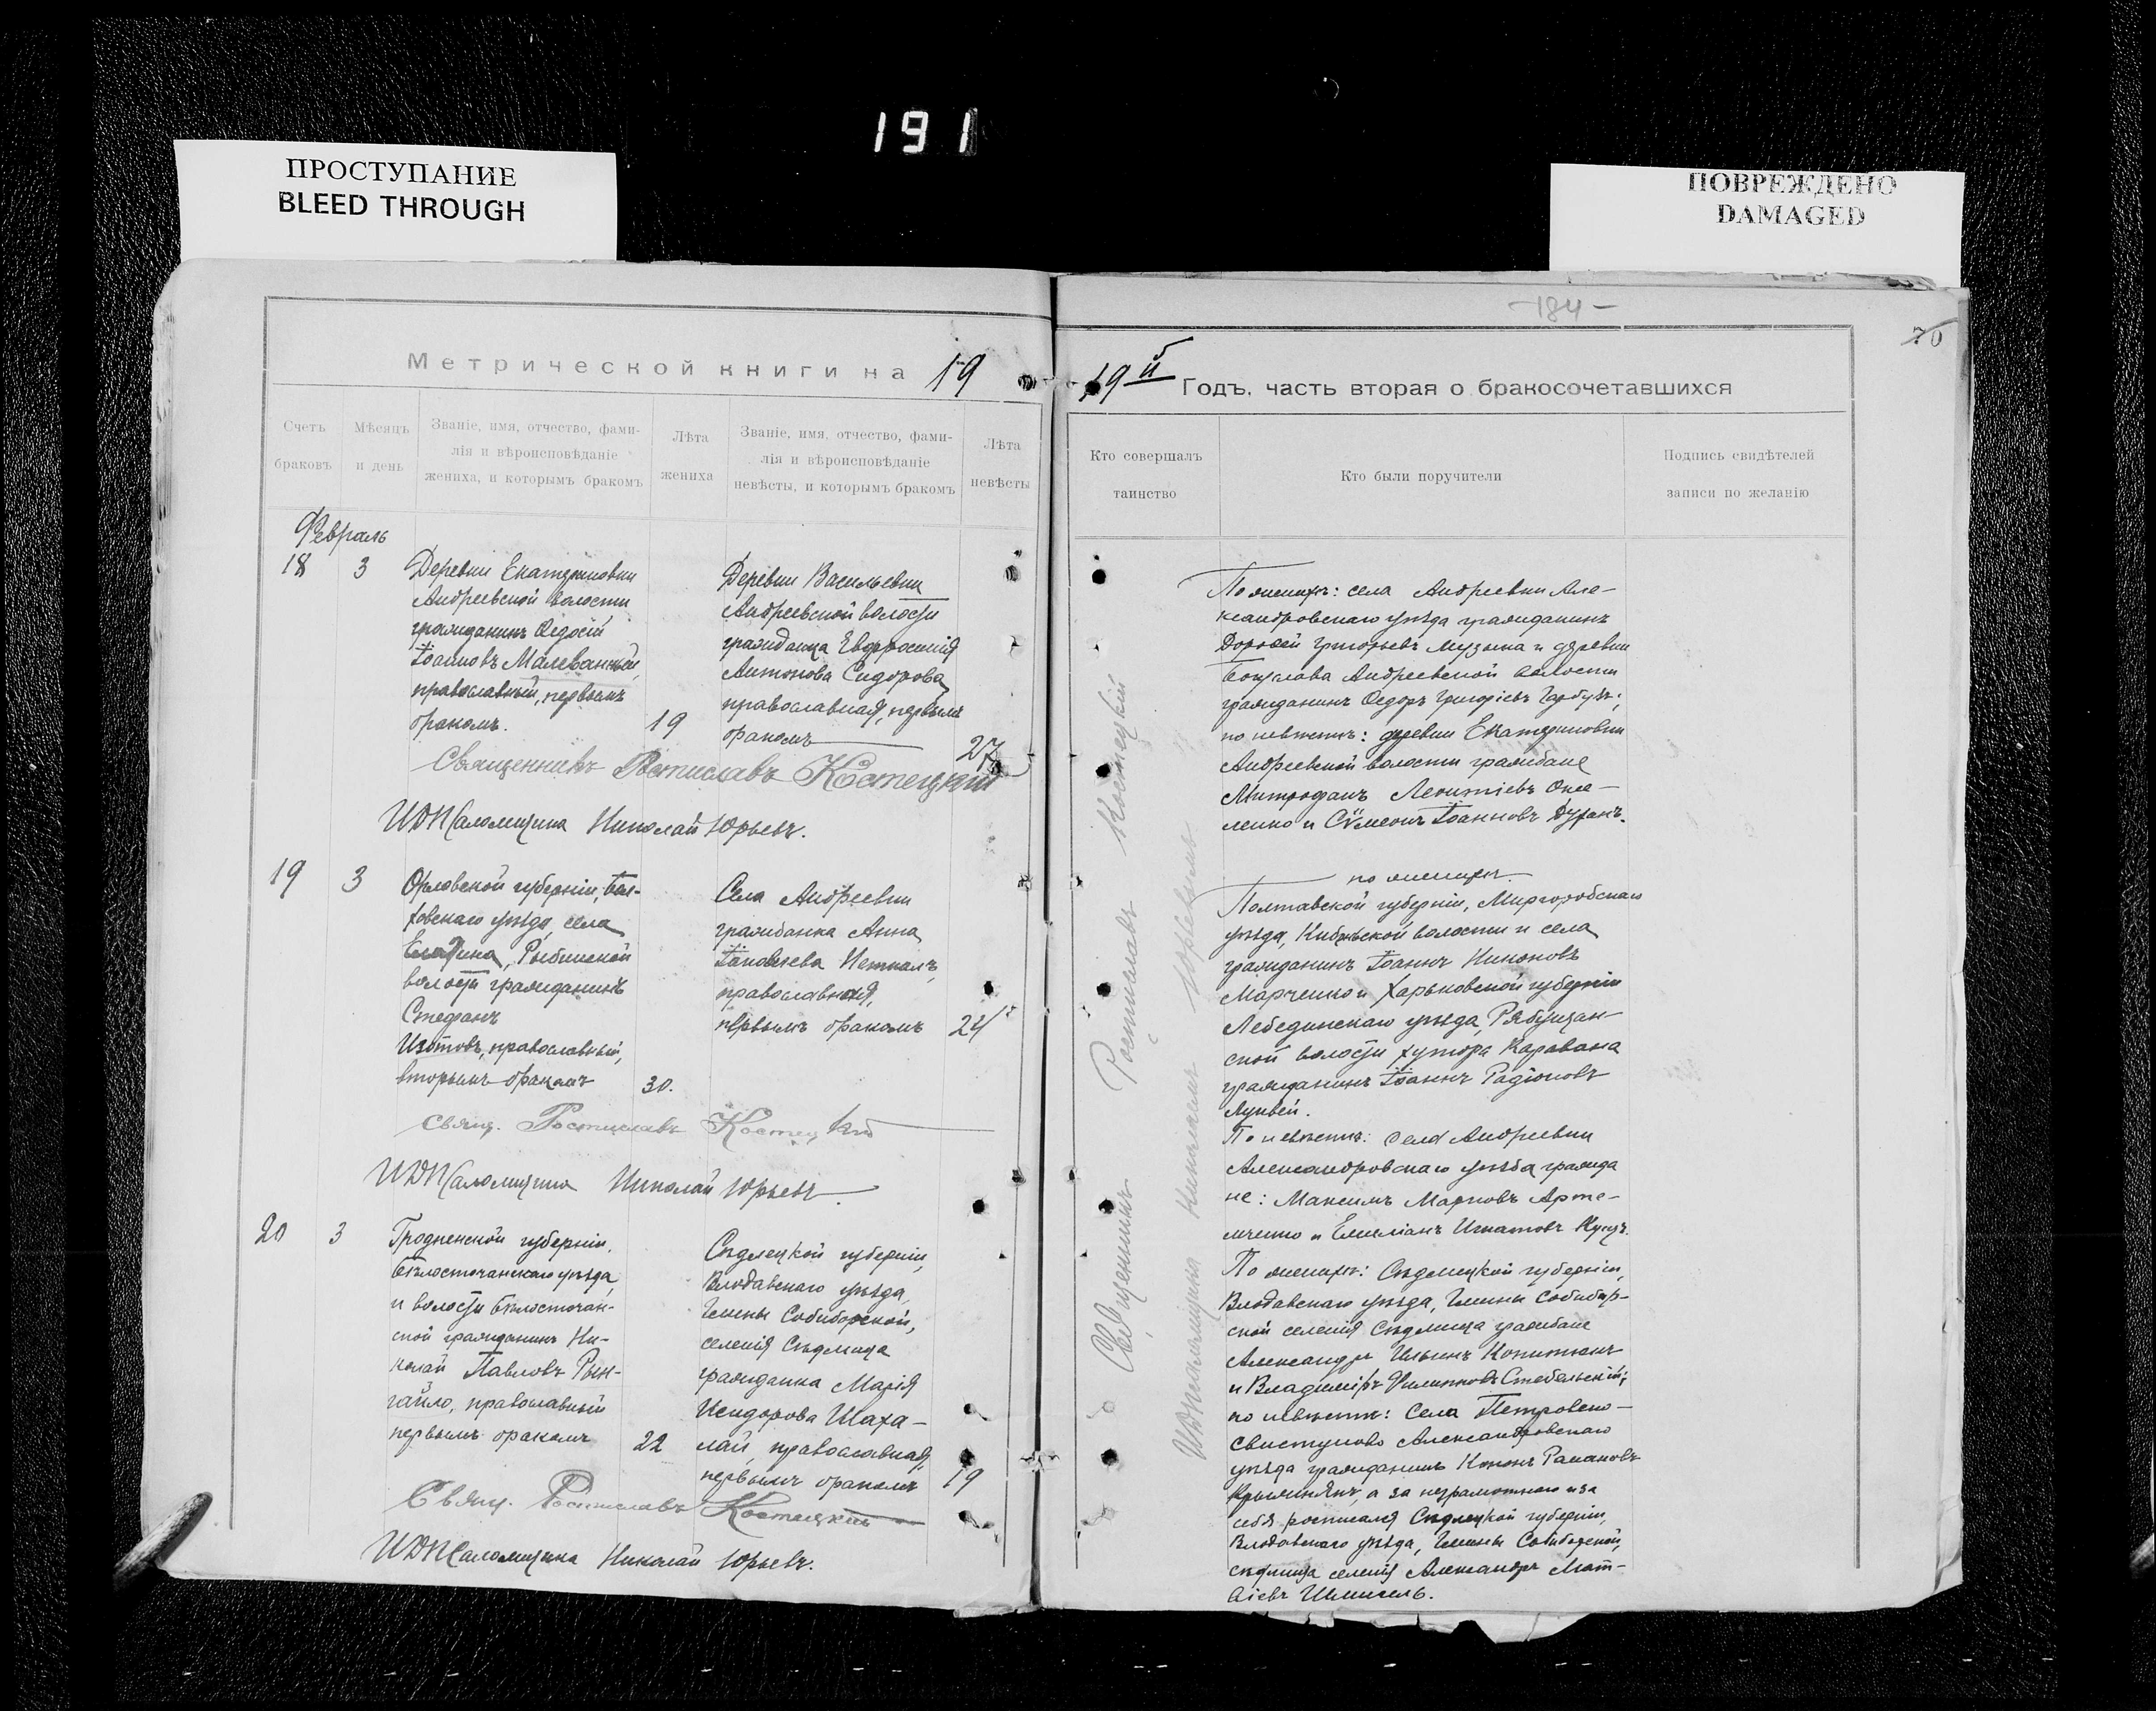 191
ПРОСТУПАНИЕ
BLEED THROUGH
ПОВРЕЖДЕНО
DAMAGED
Метрической книги на 19
Счетъ браковъ
Мѣсяцъ и день
Званіе, имя, отчество, фами-
лія и вѣроисповѣданіе
жениха, и которымъ бракомъ
Лѣта жениха
Званіе, имя, отчество, фами-
лія и вѣроисповѣданіе
невѣсты, и которымъ бракомъ
Лѣта невѣсты
Февраль
18 3
Деревни Екатериновки
Андреевской волости
гражданинъ Ѳедосій
Іоанновъ Малеванный,
православный, первымъ
бракомъ.
19
Деревни Васильевки
Андреевской волости
гражданка Евфросинія
Антонова Сидорова,
православная, первымъ
бракомъ
27
Священникъ Ростиславъ Костецкій
ИДПсаломщика Николай Юрьевъ.
19 3
Орловской губерніи, Бол-
ховскаго уѣзда, села
Рыбинской
волости гражданинъ
Стефанъ
Изотовъ, православный,
вторымъ бракомъ
30.
Села Андреевки
гражданка Анна
православная,
первымъ бракомъ
24
Свящ. Ростиславъ Костецкій
ИДПсаломщика Николай Юрьевъ.
20 3
Гродненской губерніи,
Бѣлосточанскаго уѣзда,
и волости Бѣлосточан-
ской гражданинъ Ни-
колай Павловъ Рын-
гайло, православный
первымъ бракомъ
22
Сѣдлецкой губерніи,
Влодавскаго уѣзда,
Гмины Собиборской,
селенія Сѣдлища
гражданка Марія
Исидорова Шаха-
лай, православная,
первымъ бракомъ
19
Свящ. Ростиславъ Костецкій
ИДПсаломщика Николай Юрьевъ.
-184-
70
19 й Годъ, часть вторая о бракосочетавшихся
Кто совершалъ таинство
Кто были поручители
Подпись свидѣтелей записи по желанію
Священникъ Ростиславъ Костецкій
ИДПсаломщика Николай Юрьевъ
По женихѣ: села Андреевки Але-
ксандровскаго уѣзда гражданинъ
Дороѳей Григорьевъ Музыка и деревни
Богуслава Андреевской волости
гражданинъ Ѳедоръ Григоріевъ Гарбузъ;
по невѣстѣ: деревни Екатериновки
Андреевской волости граждане
Митрофанъ Леонтіевъ Оме-
ленко и Сѵмеонъ Іоанновъ Дуганъ.
по женихѣ.
Полтавской губерніи, Миргородскаго
уѣзда, волости и села
гражданинъ Іоаннъ Никоновъ
Марченко и Харьковской губерніи
Лебединскаго уѣзда, Рябушан-
ской волости хутора Каравана
гражданинъ Іоаннъ Радіоновъ
По невѣстѣ: села Андреевки
Александровскаго уѣзда гражда
не: Максимъ Марковъ Арте-
мченко и Емиліанъ Игнатовъ Куцъ.
По женихѣ: Сѣдлецкой губерніи,
Влодавскаго уѣзда, Гмины Собибор-
ской селенія Сѣдлища граждане
Александръ Ильинъ
и Владиміръ Филипповъ Стебельскій;
по невѣстѣ: Села Петровско-
Свистуново Александровскаго
уѣзда гражданинъ Кононъ Романовъ
а за неграмотнаго и за
себя росписался Сѣдлецкой губерніи,
Влодавскаго уѣзда, Гмины Собиборской,
Сѣдлища селенія Александръ Мат-
ѳіевъ